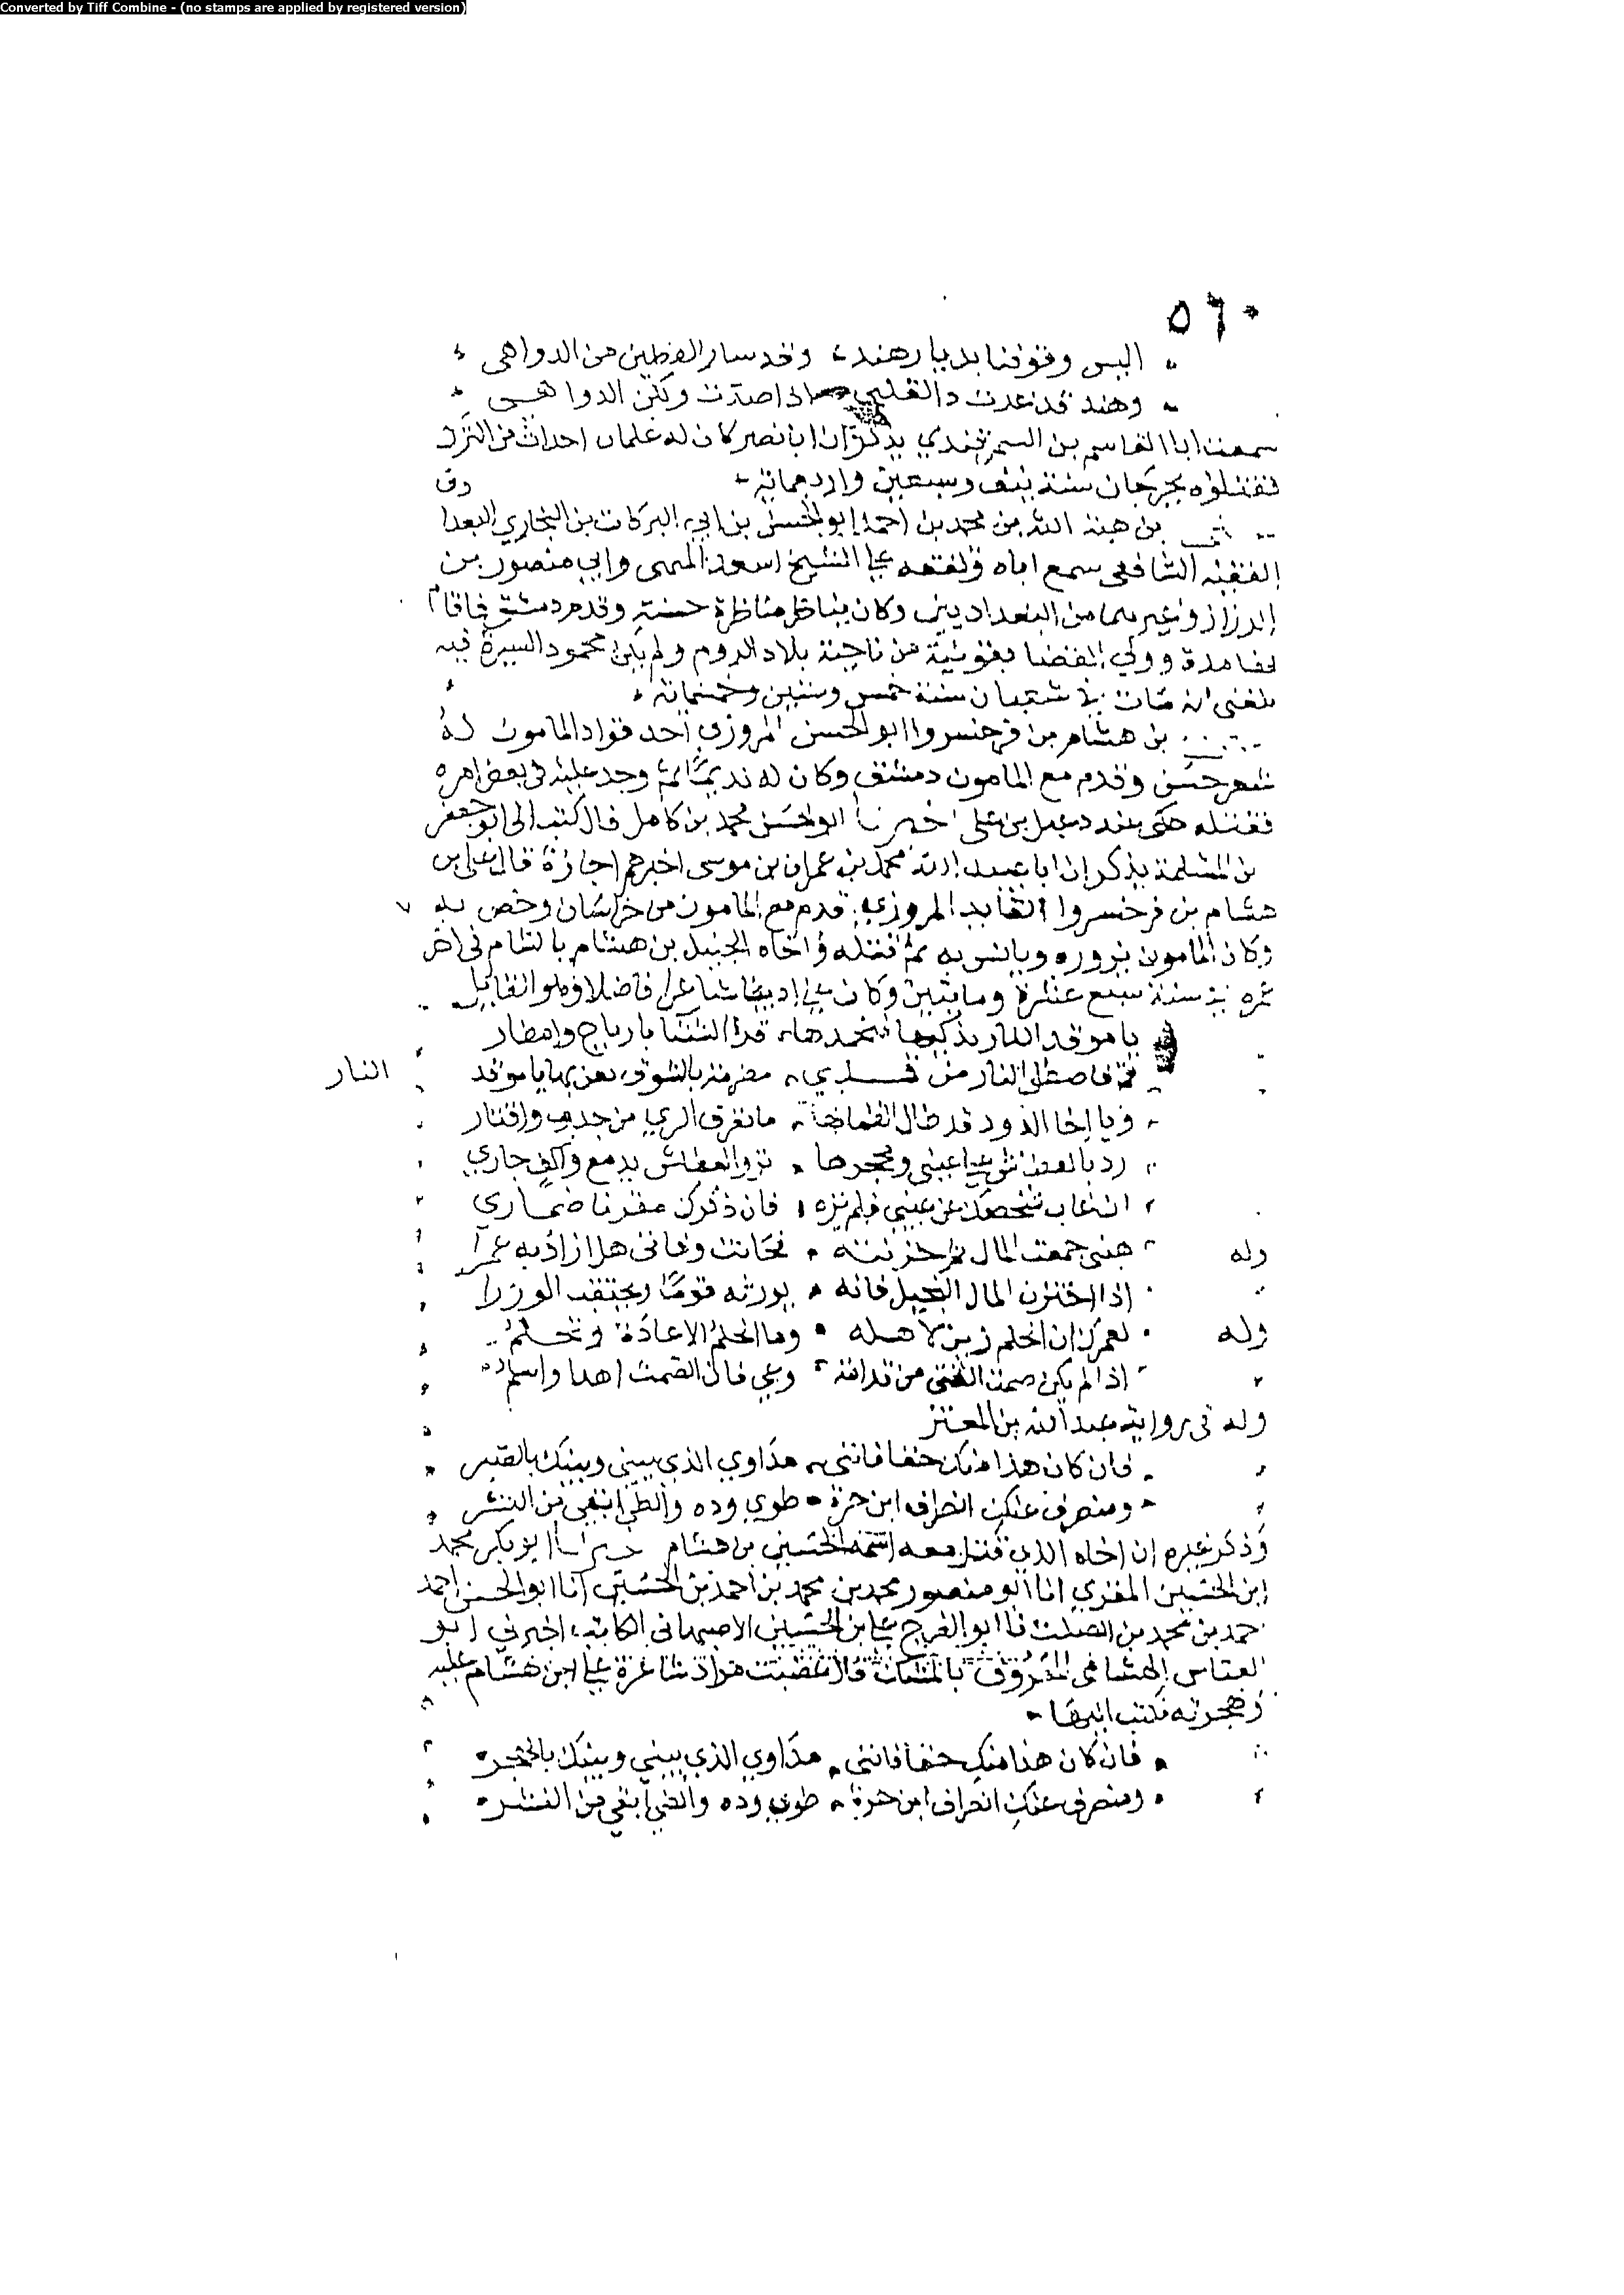 Converted by Tiff Combine - (no stamps are applied by registered version)
٥٦٠
اليس وقوفنا بديار هند، وقد سار القطين من الدواهي
وهند قد غدت داء لقلبي اذا صدت ولكن الدواهي
سمعت ابا القاسم بن السمرقندي يذكر ان ابا نصر كان له غلمان احداث من الترك
فقتلوه بجرجان سنة نيف وسبعين واربعمائة
بن هبة الله بن محمد بن احمد ابو الحسن بن ابي البركات بن البخاري البغدا
الفقيه الشافعي سمع اباه وتفقه على الشيخ اسعد الميهني وابي منصور بن
الرزاز وغيرهما من البغداديين وكان يناظر مناظرة حسنة وقدم دمشق فاقام
بها مدة وولي القضا بقونية من ناحية بلاد الروم ولم يكن محمود السيرة فيه
بلغني انه مات في شعبان سنة خمس وستين وخمسمائة
بن هشام بن فرخسروا ابو الحسن المروزي احد قواد المامون له
شعر حسن وقدم مع المامون دمشق وكان له نديما ثم وجد عليه في بعض امره
فقتله حكى عنه دعبل بن علي اخبرنا ابو الحسن محمد بن كامل قال كتب الى ابو جعفر
بن المسلمة يذكر ان ابا عبيد الله محمد بن عمران بن موسى اخبرهم اجازة قال علي بن
هشام بن فرخسروا القايد المروزي قدم مع المامون من خراسان وخص به
وكان المامون يزوره ويانس به ثم قتله واخاه الخليل بن هشام بالشام في اخر
عمره في سنة سبع عشرة ومايتين وكان علي اديبا شاعرا فاضلا وهو القايل
يا موقد النار يذكيها فيخمدها، قر الشتا بارياح وامطار
قم فاصطل النار من قلبي، مضرمة بالشوق تغن بها يا موقد النار
ويا اخا الذود قد طال الظما بها، ما تعرف الري من جدب واقتار
رد بالعطاش على عيني ومحجرها، تروا العطاش بدمع واكف جاري
ان غاب شخصك عن عيني فلم تره، فان ذكرك مقرنا ضماري
وله هبني جمعت المال ثم خزنته، وحانت وفاتي هل ازاد به عمرا
اذا اختزن المال البخيل فانه، يورثه قوما ويحتقب الوزرا
وله لعمرك ان الحلم زين لاهله، وما الحلم الا عادة وتحلم
اذا لم يكن صمت الفتى من ندامة، وعي فان الصمت اهدا واسلم
وله في رواية عبد الله بن المعتز
فان كان هذا منك حقا فانني، مداوي الذي بيني وبينك بالهجر
ومنصرف عنك انصراف ابن حرة، طوى وده والطي ابقى من النشر
وذكر غيره ان اخاه الذي قتل معه اسمه الحسين بن هشام اخبرنا ابو بكر محمد
ابن الحسين المقري انا ابو منصور محمد بن محمد بن احمد بن الحسين انا ابو الحسن احمد
حمد بن محمد بن الصلت نا ابو الفرج علي بن الحسين الاصبهاني الكاتب، اخبرني ابو
العباس الهشامي المعروف بالمسك قال غضبت مراد شاعرة علي ابن هشام عليه
وهجرته فكتب اليها
فان كان هذا منك حقا فانني، مداوي الذي بيني وبينك بالهجر
ومنصرف عنك انصراف ابن حرة، طوى وده والطي ابقى من النشر